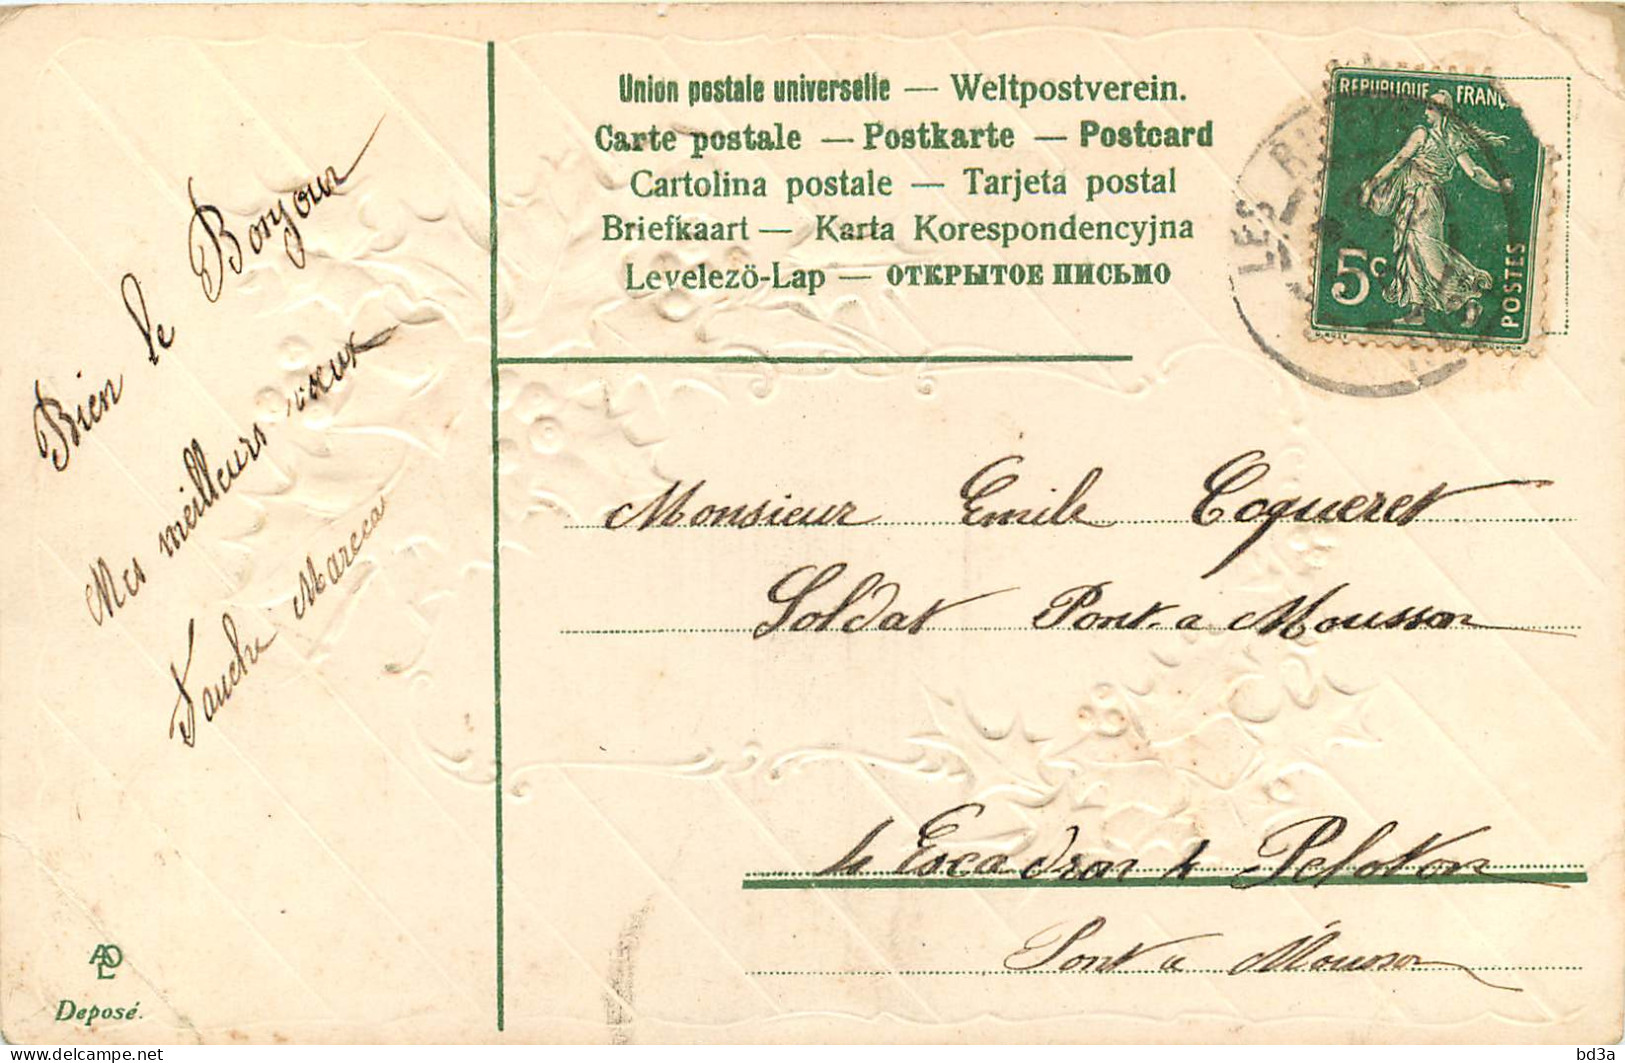 Union postale universelle — Weltpostverein.
Carte postale — Postkarte — Postcard
Cartolina postale — Tarjeta postal
Briefkaart — Karta Korespondencyjna
Levelezö-Lap — ОТКРЫТОЕ ПИСЬМО
REPUBLIQUE FRANÇ
5c
POSTES
LES RI
Bien le Bonjour
Mes meilleurs vœux
Fauche Marcea
Monsieur Emile Coqueret
Soldat Pont-a Mousson
4e Escadron 4e Peloton
Pont a Mousson
ADL
Deposé.
delcampe.net
bd3a